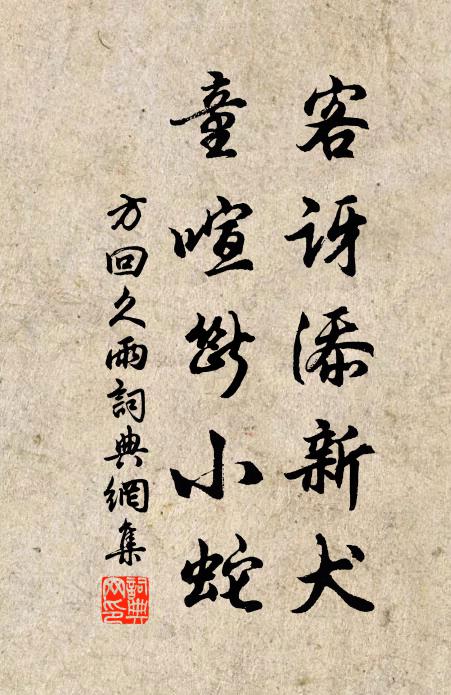 客訝添新犬
童喧斷小蛇
方回久雨詞典網集
詞典网印